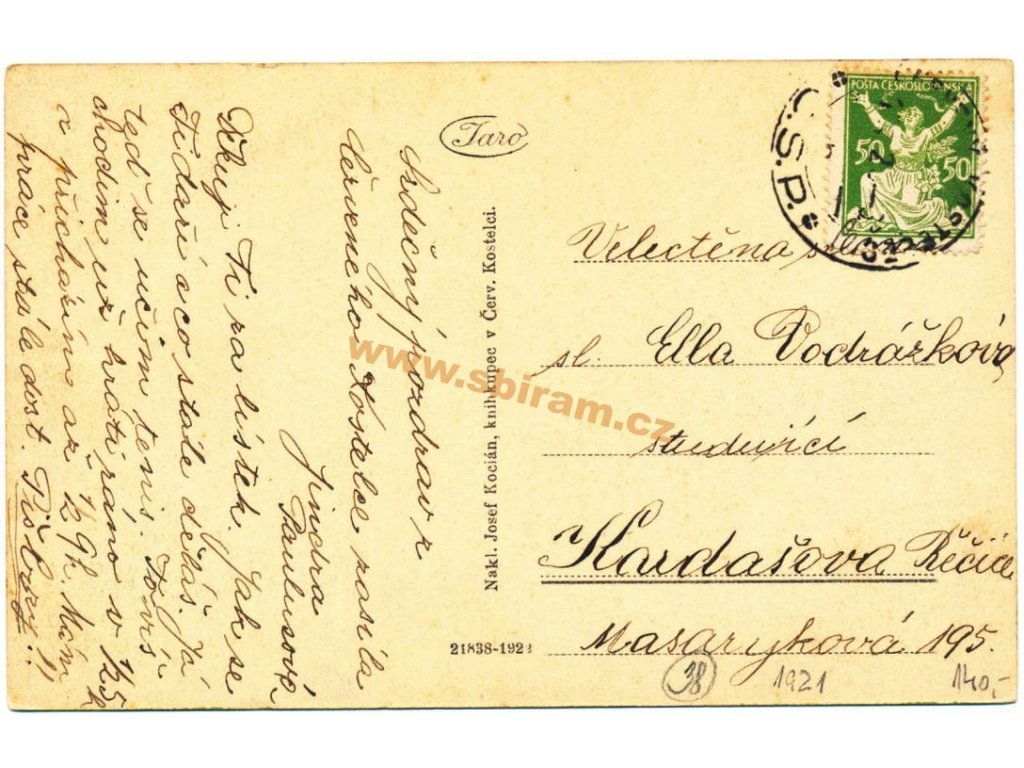 Srdečný pozdrav z
Červeného Kostelce zasílá
Jindra
Paulusová
Děkuji Ti za lístek. Jak se
Ti daří a co stále děláš. Já
teď se učím tenis. To víš
chodím už hráti ráno v ½5h
a přicházím až ½9h. Mám
práce stále dost. Piš brzy!!
Jaro
Nakl. Josef Kocián, knihkupec v Červ. Kostelci.
21838-192
POŠTA ČESKOSLOVENSKÁ
50 50
Č.S.P.
Velectěná slečna
sl. Ella Vodrážková
studující
Kardašova Řečice
Masarykova 195.
38 1921 140,-
www.sbiram.cz